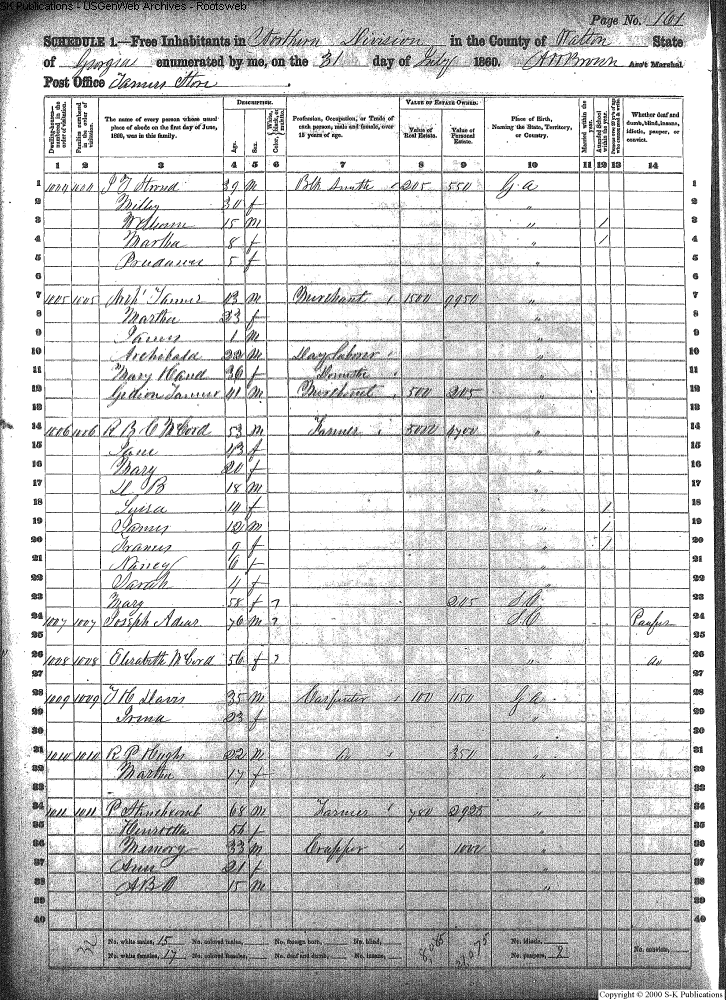 S-K Publications - USGenWeb Archives - Rootsweb
Page No. 161
SCHEDULE 1.—Free Inhabitants in Northern Division in the County of Walton State
of Georgia enumerated by me, on the 31 day of July 1860. Ass't Marshal
Post Office
DESCRIPTION. VALUE OF ESTATE OWNED.
Dwelling-houses—numbered in the order of visitation. Families numbered in the order of visitation. The name of every person whose usual place of abode on the first day of June, 1860, was in this family. Age. Sex. Color, {White, black, or mulatto. Profession, Occupation, or Trade of each person, male and female, over 15 years of age. Value of Real Estate. Value of Personal Estate. Place of Birth, Naming the State, Territory, or Country. Married within the year. Attended School within the year. Whether deaf and dumb, blind, insane, idiotic, pauper, or convict.
1 2 3 4 5 6 7 8 9 10 11 12 13 14
1 1004 39 m Blk Smith 205 550 Ga 1
2 Milly 30 f " 2
3 15 m " 1 3
4 Martha 8 f " 1 4
5 5 f 5
6 6
7 1005 1005 Tanner 43 m Merchant 1500 9950 " 7
8 Martha 33 f " 8
9 James 1 m 9
10 Archibald 22 m Day Laborer " 10
11 Mary Hand 36 f Domestic " 11
12 Gedion Tanner 41 m Merchant 500 205 " 12
13 13
14 1006 1006 R B C McCord 53 m Farmer 3000 4700 " 14
15 Jane 43 f " 15
16 Mary 20 f " 16
17 18 m " 17
18 14 f " 1 18
19 James 12 m " 1 19
20 Frances 9 f " 1 20
21 Nancy 6 f " 21
22 Sarah 4 f " 22
23 Mary 58 f 205 S.C. 23
24 1007 1007 Joseph Adair 76 m S.C. 24
25 25
26 1008 1008 Elizabeth McCord 56 f " do 26
27 27
28 1009 1009 Davis 35 m Carpenter 100 1150 Ga 28
29 23 f " 29
30 30
31 1010 1010 R P Hughs 22 m do 350 " 31
32 Martha 17 f " 32
33 33
34 1011 1011 P Stinchcomb 68 m Farmer 780 2925 " 34
35 Henrietta 56 f " 35
36 Memory 33 m Cropper 1000 " 36
37 Ann 21 f " 37
38 15 m " 38
39 39
40 40
No. white males, 15 No. colored males, No. foreign born, No. blind, No. idiotic, No. convicts,
No. white females, 17 No. colored females, No. deaf and dumb, No. insane, No. paupers, 2
Copyright © 2000 S-K Publications